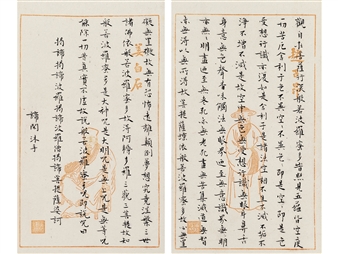 觀自在菩薩行深般若波羅蜜多時照見五蘊皆空度
一切苦厄舍利子色不異空空不異色色即是空空即是色
受想行識亦復如是舍利子是諸法空相不生不滅不垢不
淨不增不減是故空中無色無受想行識無眼耳鼻舌
身意無色聲香味觸法無眼界乃至無意識界無無明
亦無無明盡乃至無老死亦無老死盡無苦集滅道無智
亦無得以無所得故菩提薩埵依般若波羅蜜多故心無罣
礙無罣礙故無有恐怖遠離顛倒夢想究竟涅槃三世
諸佛依般若波羅蜜多故得阿耨多羅三藐三菩提故知
般若波羅蜜多是大神咒是大明咒是無上咒是無等等咒
能除一切苦真實不虛故說般若波羅蜜多咒即說咒曰
揭諦揭諦波羅揭諦波羅僧揭諦菩提薩婆訶
諦閑沐手
姜白石